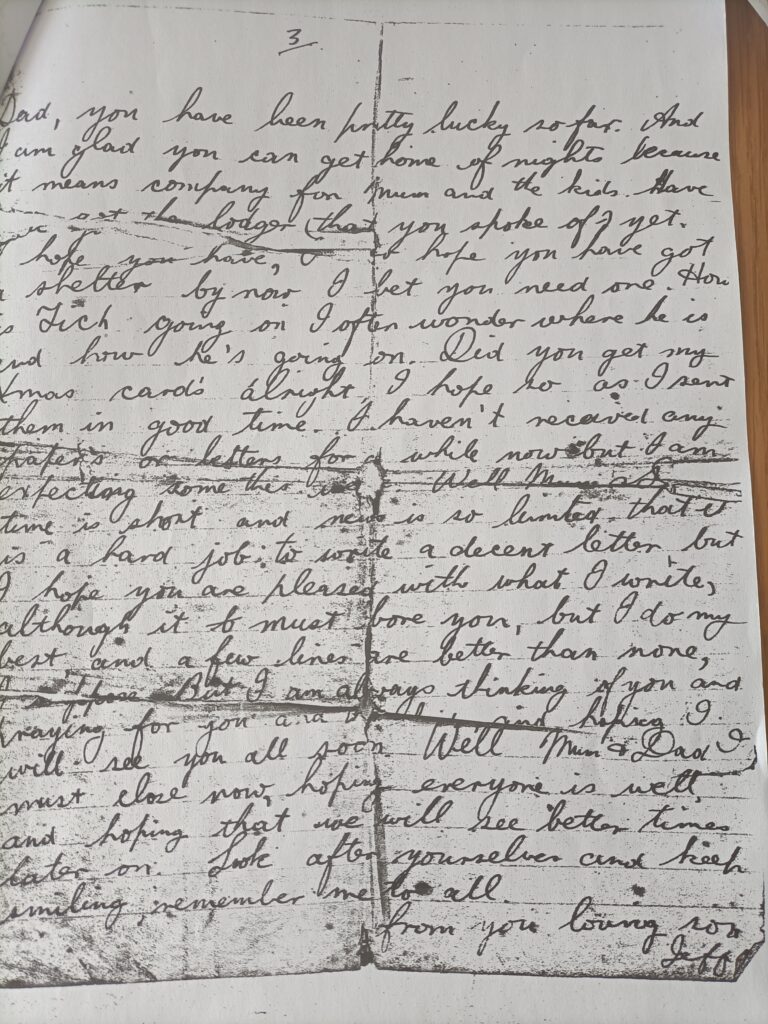 3
Dad, you have been pretty lucky so far. And
I am glad you can get home of nights because
it means company for Mum and the kids. Have
got the lodger (that you spoke of) yet.
I hope you have, I hope you have got
a shelter by now I bet you need one. How
is Tich going on I often wonder where he is
and how he's going on. Did you get my
Xmas card's alright, I hope so as I sent
them in good time. I haven't received any
paper's or letters for a while now but I am
expecting some this Well Mum
time is short and news is so limited that it
is a hard job to write a decent letter, but
I hope you are pleased with what I write,
although it b must bore you, but I do my
best, and a few lines are better than none,
I suppose. But I am always thinking of you and
praying for you and and hoping I
will see you all soon. Well Mum & Dad I
must close now, hoping everyone is well,
and hoping that we will see better times
later on. Look after yourselves and keep
smiling, remember me to all.
from you loving son
Jeff